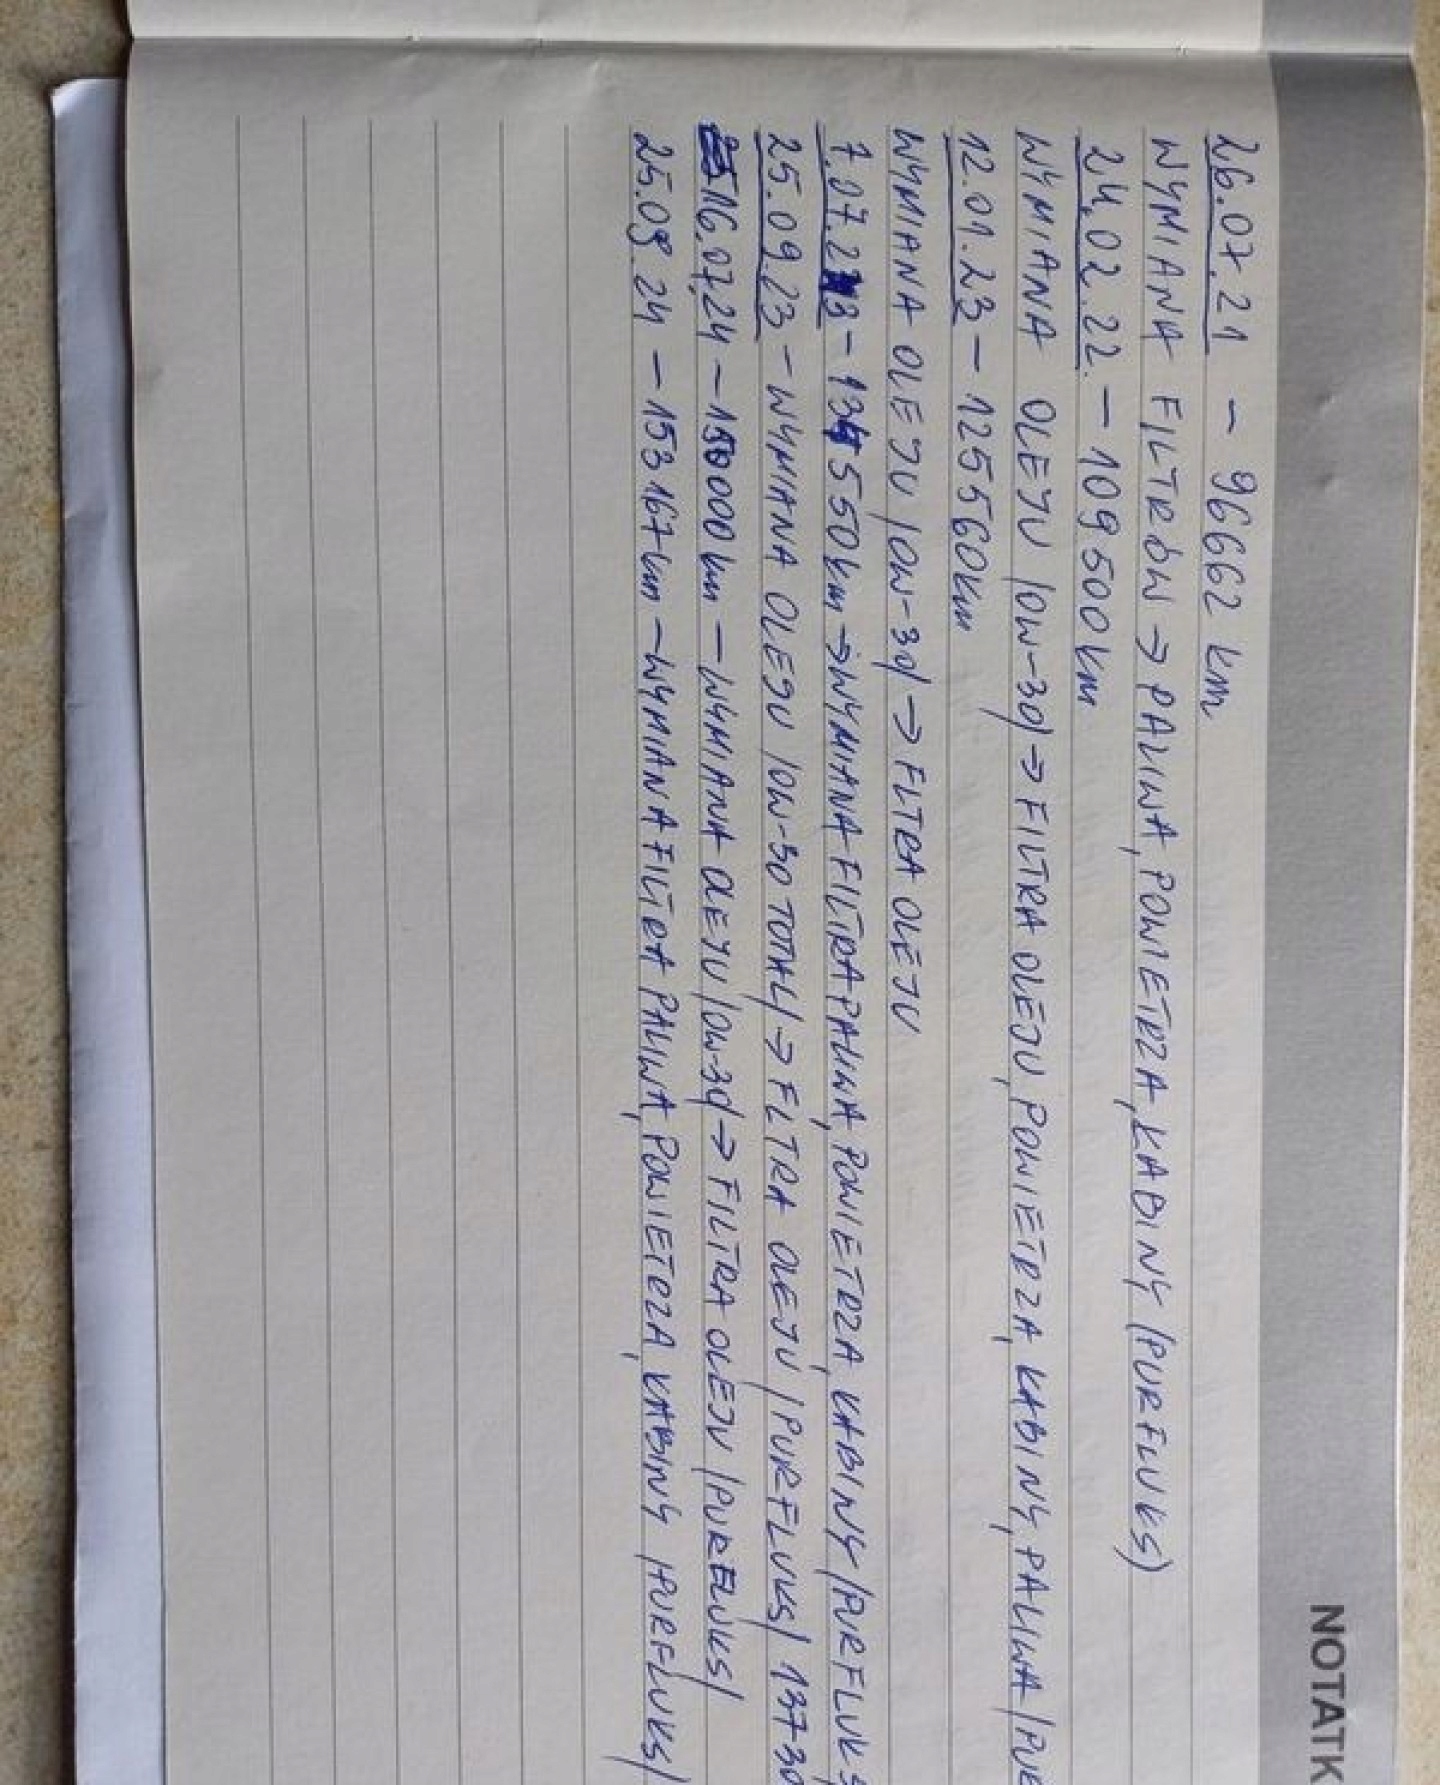 NOTATK
26.07.21 - 96662 km
WYMIANA FILTRÓW → PALIWA, POWIETRZA, KABINY (PURFLUKS)
24.02.22. - 109500km
WYMIANA OLEJU /0W-30/ → FILTRA OLEJU, POWIETRZA, KABINY, PALIWA /PUR
12.01.23 - 125560km
WYMIANA OLEJU /0W-30/ → FLTRA OLEJU
7.07.23 - 134550km → WYMIANA FILTRA PALIWA, POWIETRZA, KABINY /PURFLUKS
25.09.23 - WYMIANA OLEJU /0W-30 TOTAL/ → FLTRA OLEJU /PURFLUKS/ 13730
16.07.24 - 150000km - WYMIANA OLEJU /0W-30/ → FILTRA OLEJU /PURFLUKS/
25.09.24 - 153167km - WYMIANA FILTRA PALIWA, POWIETRZA, KABINY /PURFLUKS/